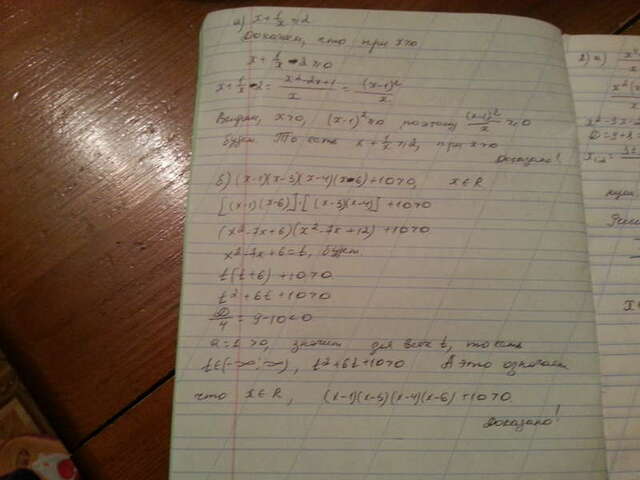 а) x + 1/x ≥ 2
Докажем, что при x>0
x + 1/x - 2 ≥ 0
x + 1/x - 2 = (x²-2x+1)/x = (x-1)²/x
x>0, (x-1)² ≥ 0 поэтому (x-1)²/x ≥ 0
будет. То есть x + 1/x ≥ 2, при x>0
Доказано!
б) (x-1)(x-3)(x-4)(x-6)+10>0, x∈R
[(x-1)(x-6)]·[(x-3)(x-4)]+10>0
(x²-7x+6)(x²-7x+12)+10>0
x²-7x+6=t, будет
t(t+6)+10>0
t²+6t+10>0
D/4 = 9-10<0
a=1>0, значит для всех t, то есть
t∈(-∞;∞), t²+6t+10>0 А это означает
что x∈R, (x-1)(x-3)(x-4)(x-6)+10>0
Доказано!
2) а)